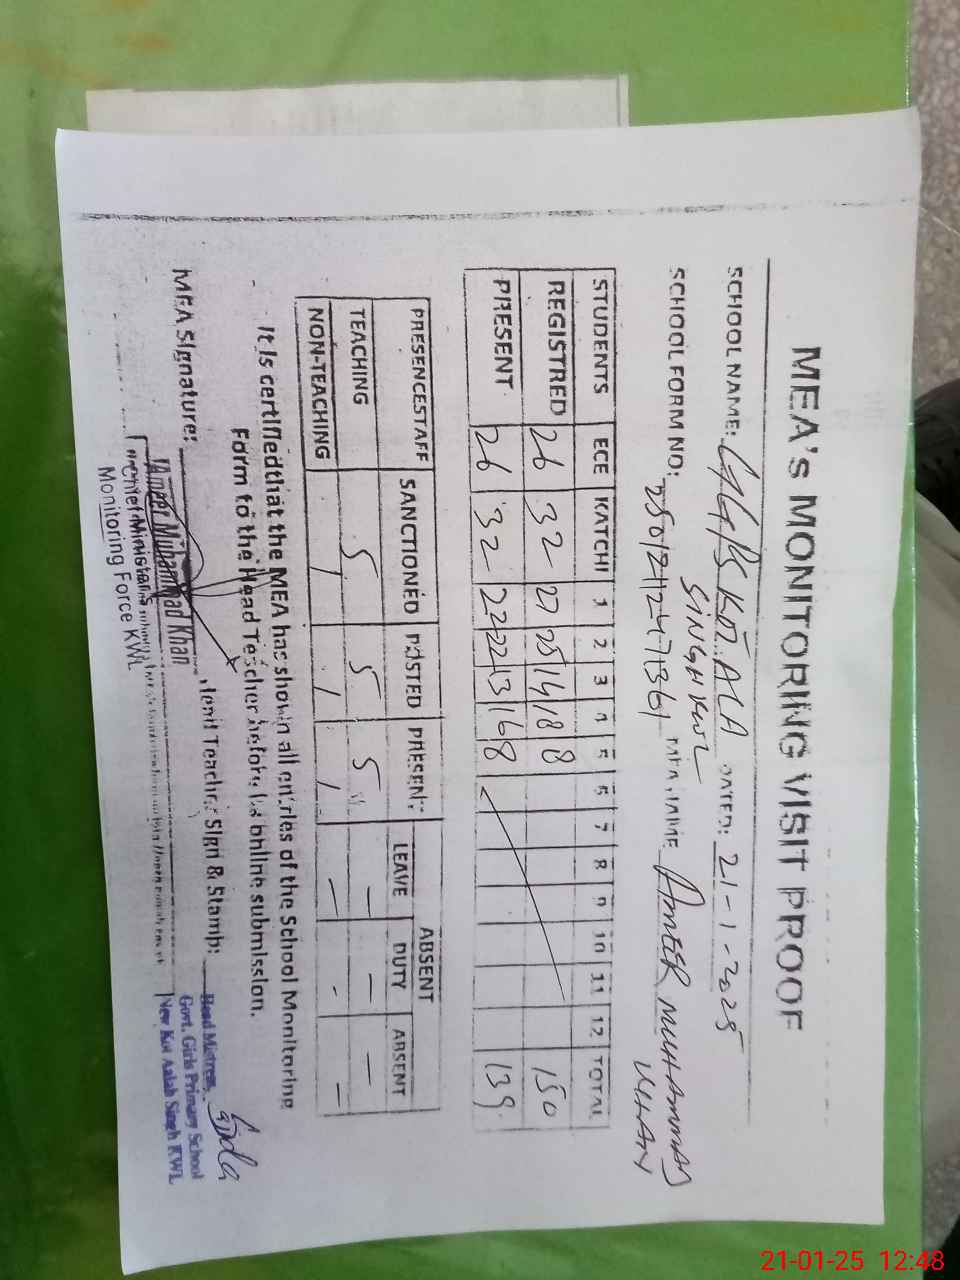 MEA's MONITORING VISIT PROOF
SCHOOL NAME: GG/PS KOT ALA SINGH KWL DATED: 21-1-2025
SCHOOL FORM NO: MEA NAME AMEER MUHAMMAD KHAN
STUDENTS ECE KATCHI 1 2 3 4 5 6 7 8 9 10 11 12 TOTAL
REGISTRED 26 32 27 25 14 18 8 150
PRESENT 26 32 22 22 13 16 8 139
PRESENCESTAFF SANCTIONED POSTED PRESENT ABSENT
LEAVE DUTY ABSENT
TEACHING 5 5 5 - - -
NON-TEACHING 1 1 1 - - -
It is certifiedthat the MEA has shown all entries of the School Monitoring
Form to the Head Teacher before his online submission.
MEA Signature: Head Teacher Sign & Stamp:
Ameer Muhammad Khan
Chief Minister's
Monitoring Force KWL
Head Mistress
Govt. Girls Primary School
New Kot Aalah Singh KWL
21-01-25 12:48